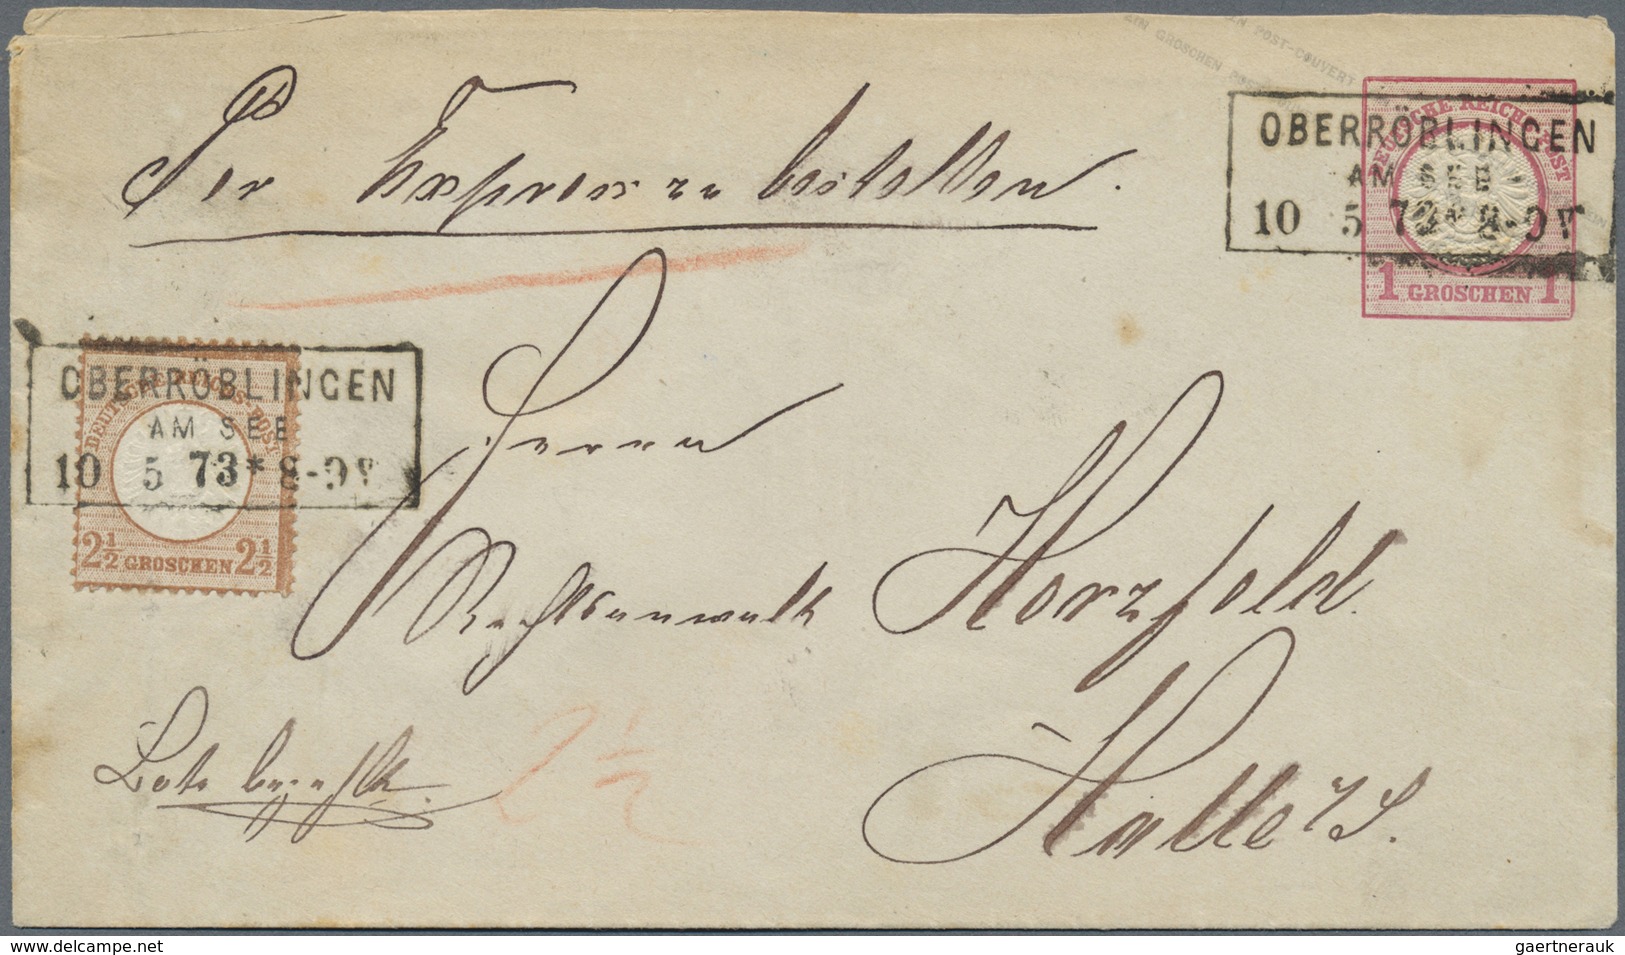 EIN GROSCHEN POST-COUVERT
Per Express zu bestellen.
DEUTSCHE REICHS-POST
1 GROSCHEN 1
OBERRÖBLINGEN
AM SEE
10 5 73* 8-9V
DEUTSCHE REICHS-POST
2½ GROSCHEN 2½
OBERRÖBLINGEN
AM SEE
10 5 73* 8-9V
Herrn
Rechtsanwalt Herzfeld.
Halle a/S.
Bote bezahlt.
2½
www.delcampe.net
gaertnerauk